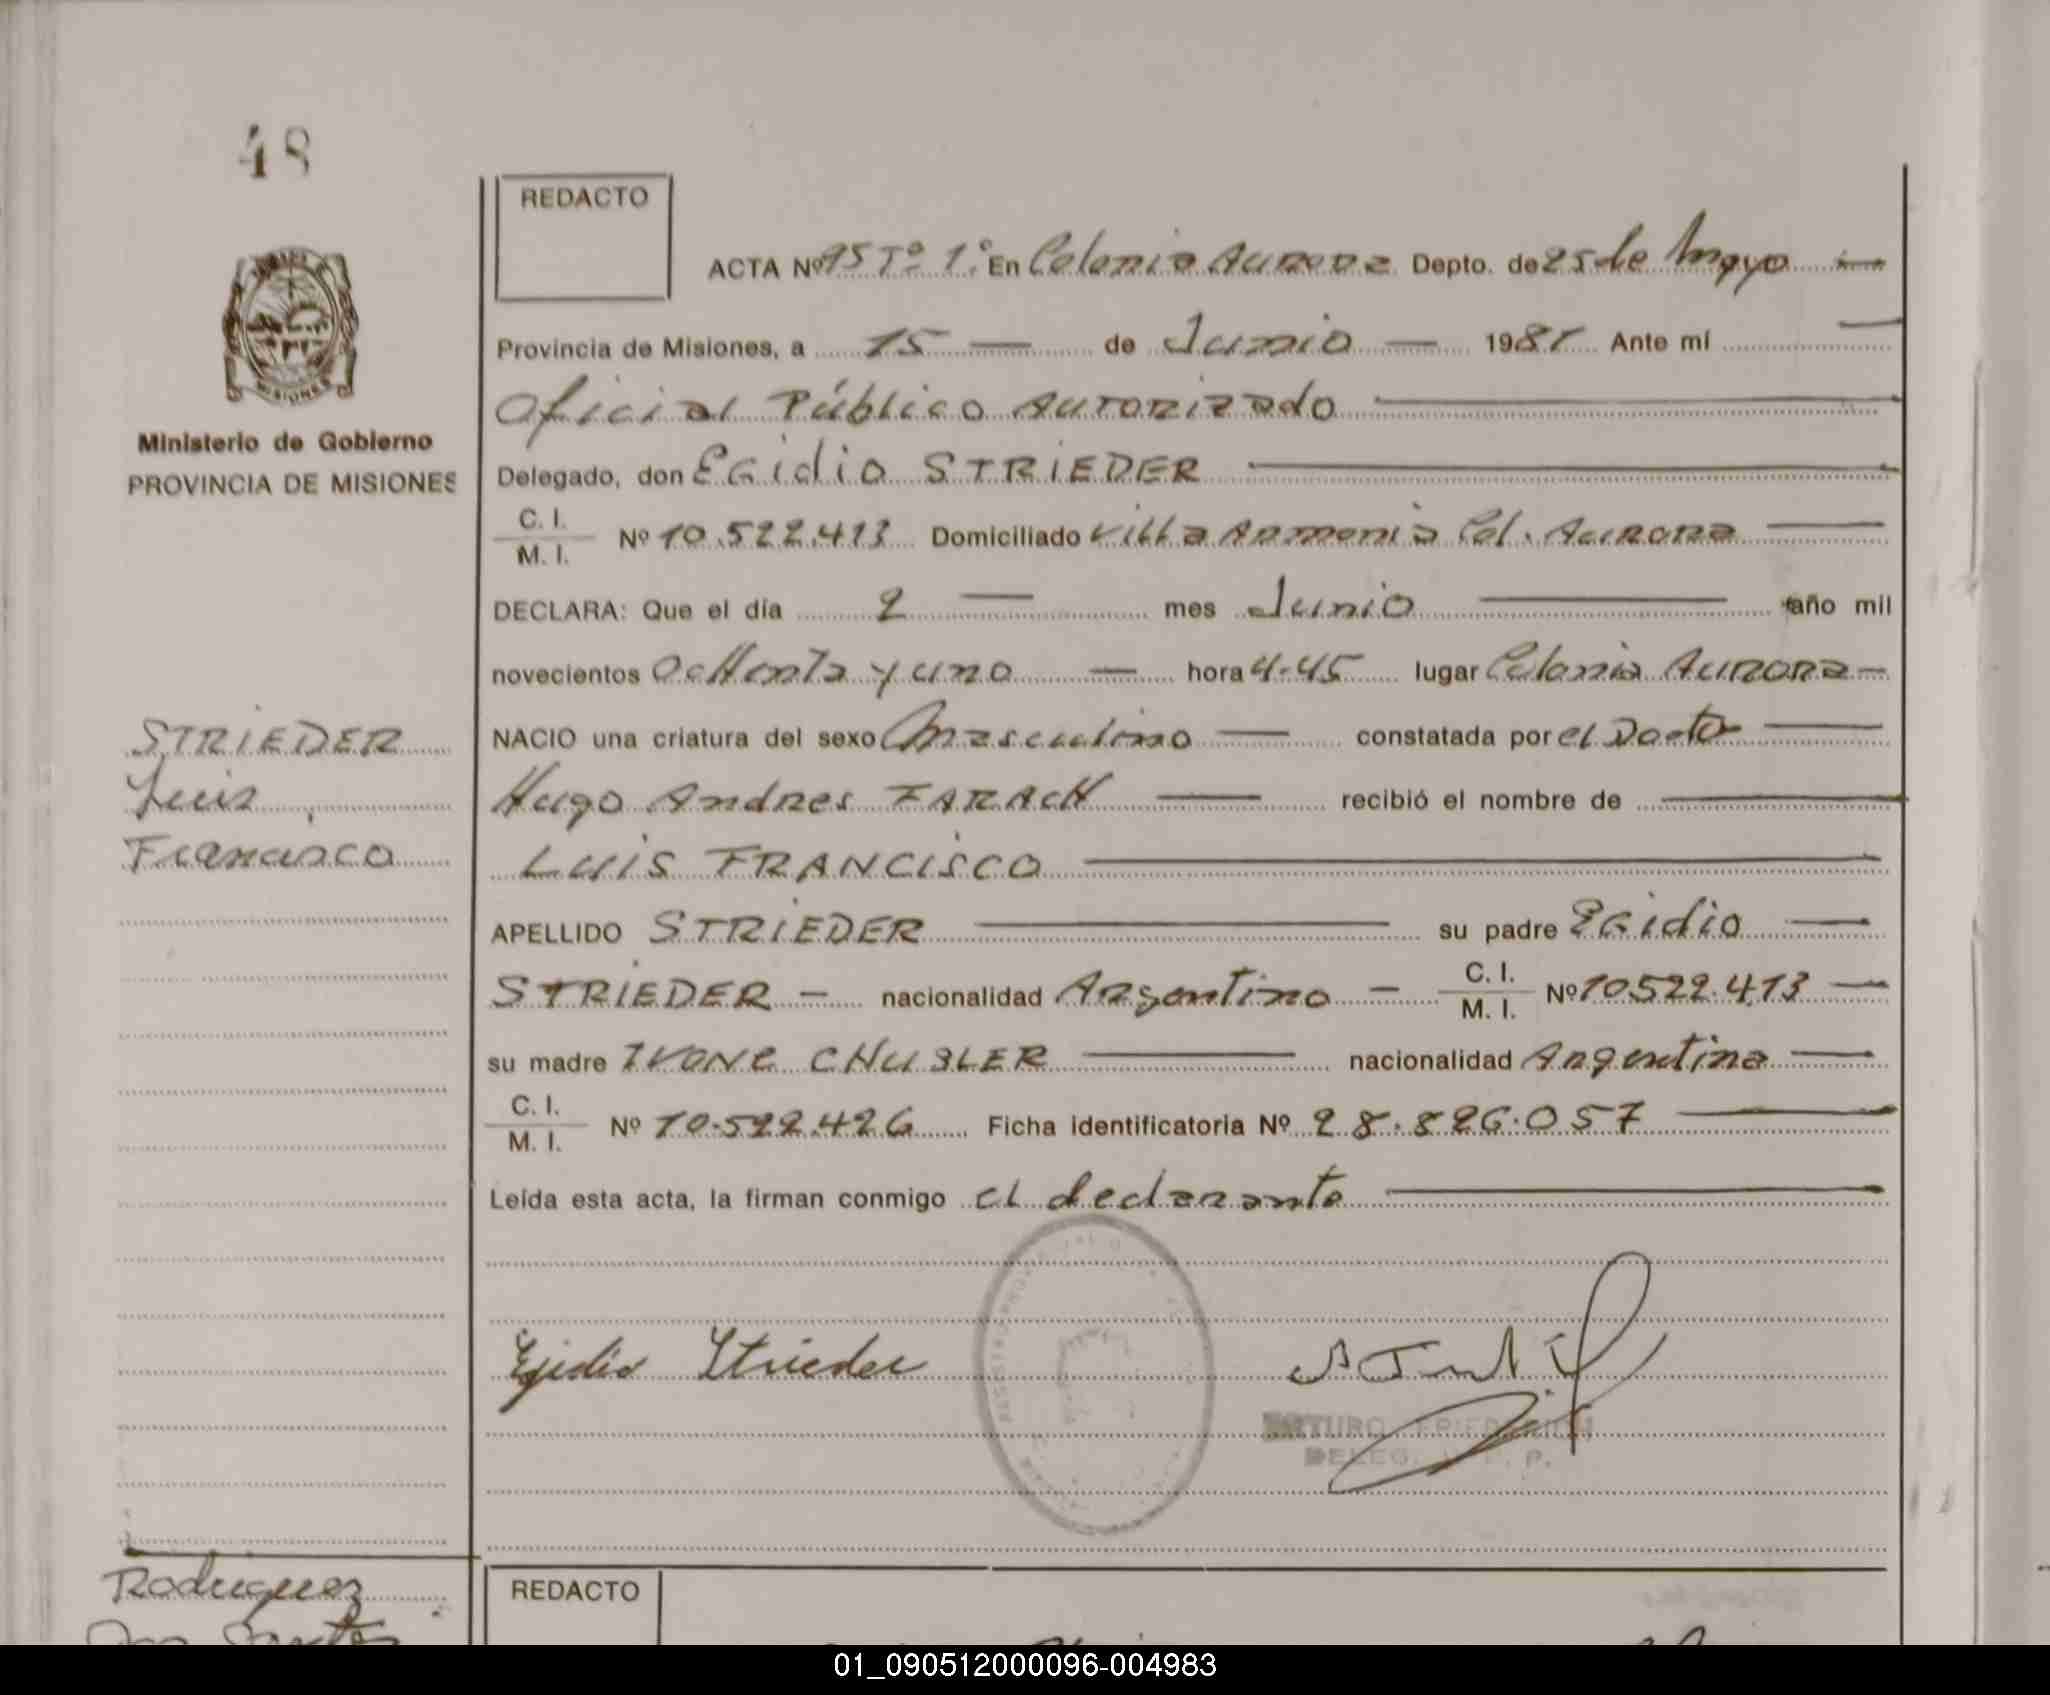 48
REDACTO
ACTA Nº 95 Tº 1º En Colonia Aurora Depto. de 25 de Mayo
Provincia de Misiones, a 15 de Junio 1981 Ante mí
Oficial Público Autorizado
Ministerio de Gobierno
PROVINCIA DE MISIONES
Delegado, don Egidio STRIEDER
C. I.
M. I. Nº 10.522.413 Domiciliado Villa Armonia Col. Aurora
DECLARA: Que el día 2 mes Junio año mil
novecientos Ochenta y uno hora 4-45 lugar Colonia Aurora
STRIEDER
Luis
Francisco
NACIO una criatura del sexo Masculino constatada por el Doctor
Hugo Andres FARACH recibió el nombre de
LUIS FRANCISCO
APELLIDO STRIEDER su padre Egidio
STRIEDER nacionalidad Argentino C. I. M. I. Nº 10522.413
su madre IVONE CHUBLER nacionalidad Argentina
C. I.
M. I. Nº 10.522.426 Ficha identificatoria Nº 28.826.057
Leída esta acta, la firman conmigo el declarante
Egidio Strieder
ARTURO FRIEDRICH
DELEG.
Rodriguez
REDACTO
01_090512000096-004983